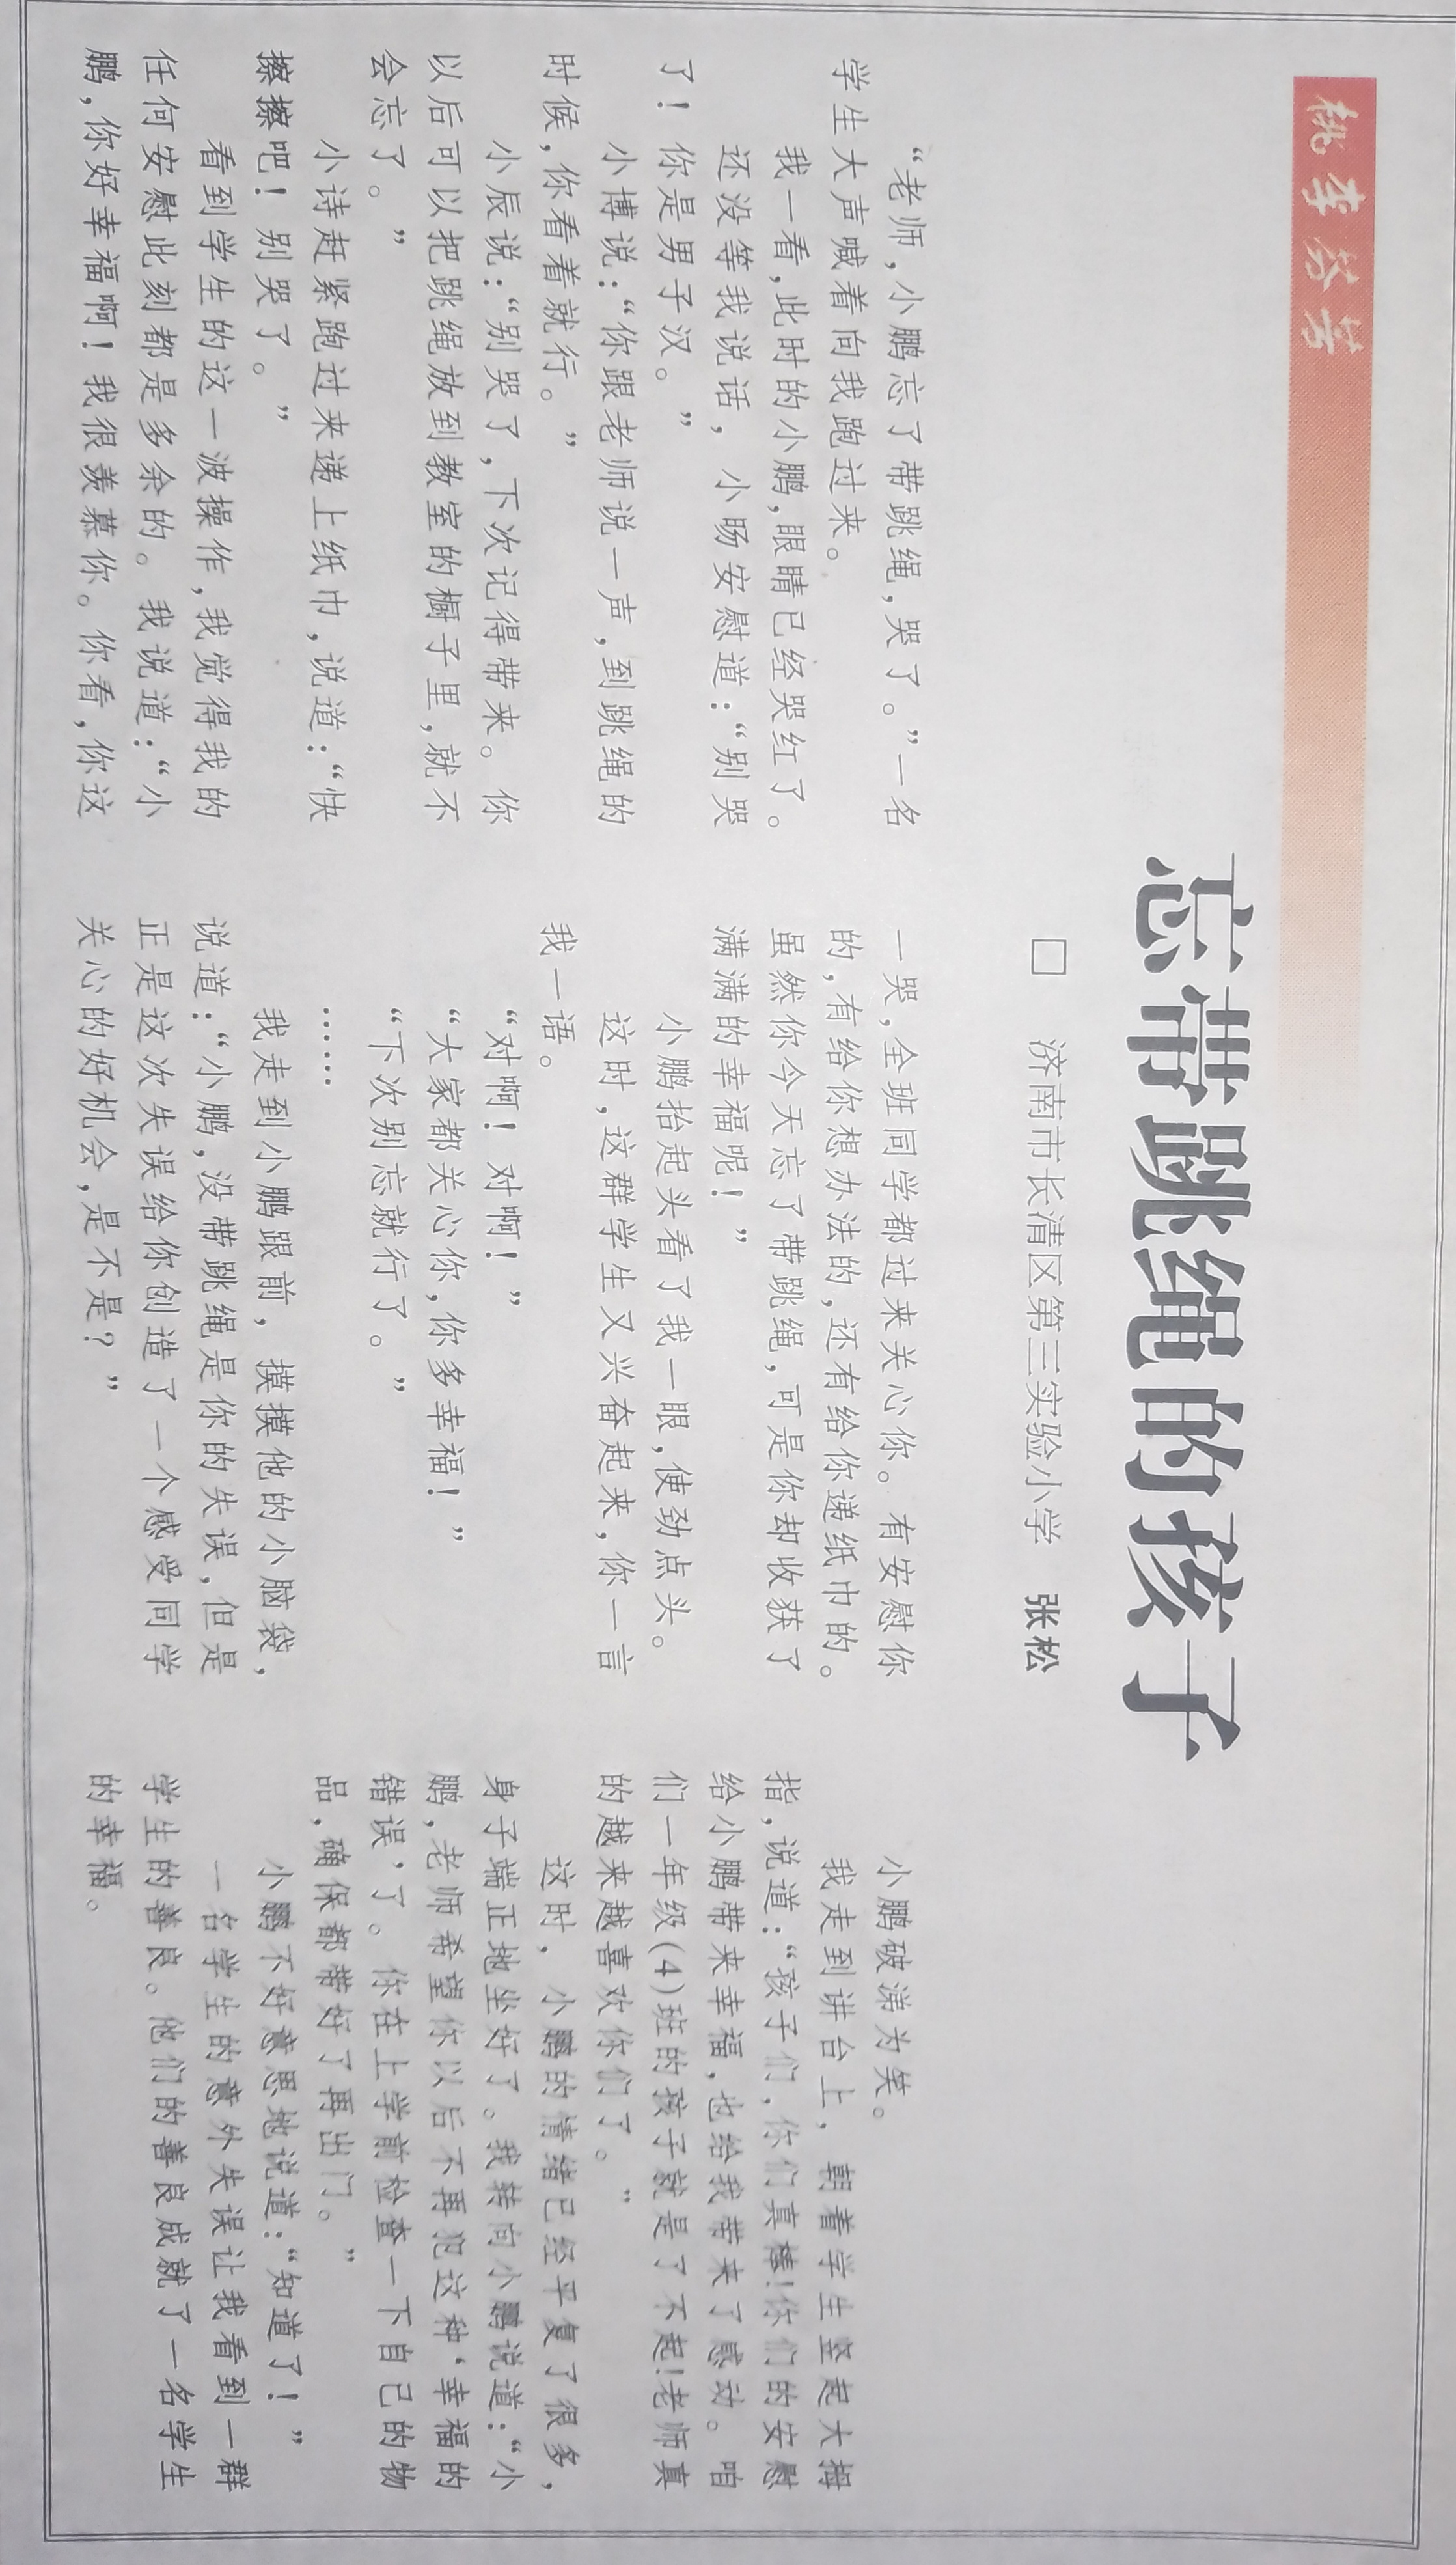 桃李芬芳
忘带跳绳的孩子
□ 济南市长清区第三实验小学 张松
“老师,小鹏忘了带跳绳,哭了。”一名
学生大声喊着向我跑过来。
我一看,此时的小鹏,眼睛已经哭红了。
还没等我说话,小旸安慰道:“别哭
了!你是男子汉。”
小博说:“你跟老师说一声,到跳绳的
时候,你看着就行。”
小辰说:“别哭了,下次记得带来。你
以后可以把跳绳放到教室的橱子里,就不
会忘了。”
小诗赶紧跑过来递上纸巾,说道:“快
擦擦吧!别哭了。”
看到学生的这一波操作,我觉得我的
任何安慰此刻都是多余的。我说道:“小
鹏,你好幸福啊!我很羡慕你。你看,你这
一哭,全班同学都过来关心你。有安慰你
的,有给你想办法的,还有给你递纸巾的。
虽然你今天忘了带跳绳,可是你却收获了
满满的幸福呢!”
小鹏抬起头看了我一眼,使劲点头。
这时,这群学生又兴奋起来,你一言
我一语。
“对啊!对啊!”
“大家都关心你,你多幸福!”
“下次别忘就行了。”
……
我走到小鹏跟前,摸摸他的小脑袋,
说道:“小鹏,没带跳绳是你的失误,但是
正是这次失误给你创造了一个感受同学
关心的好机会,是不是?”
小鹏破涕为笑。
我走到讲台上,朝着学生竖起大拇
指,说道:“孩子们,你们真棒!你们的安慰
给小鹏带来幸福,也给我带来了感动。咱
们一年级(4)班的孩子就是了不起!老师真
的越来越喜欢你们了。”
这时,小鹏的情绪已经平复了很多,
身子端正地坐好了。我转向小鹏说道:“小
鹏,老师希望你以后不再犯这种‘幸福的
错误’了。你在上学前检查一下自己的物
品,确保都带好了再出门。”
小鹏不好意思地说道:“知道了!”
一名学生的意外失误让我看到一群
学生的善良。他们的善良成就了一名学生
的幸福。